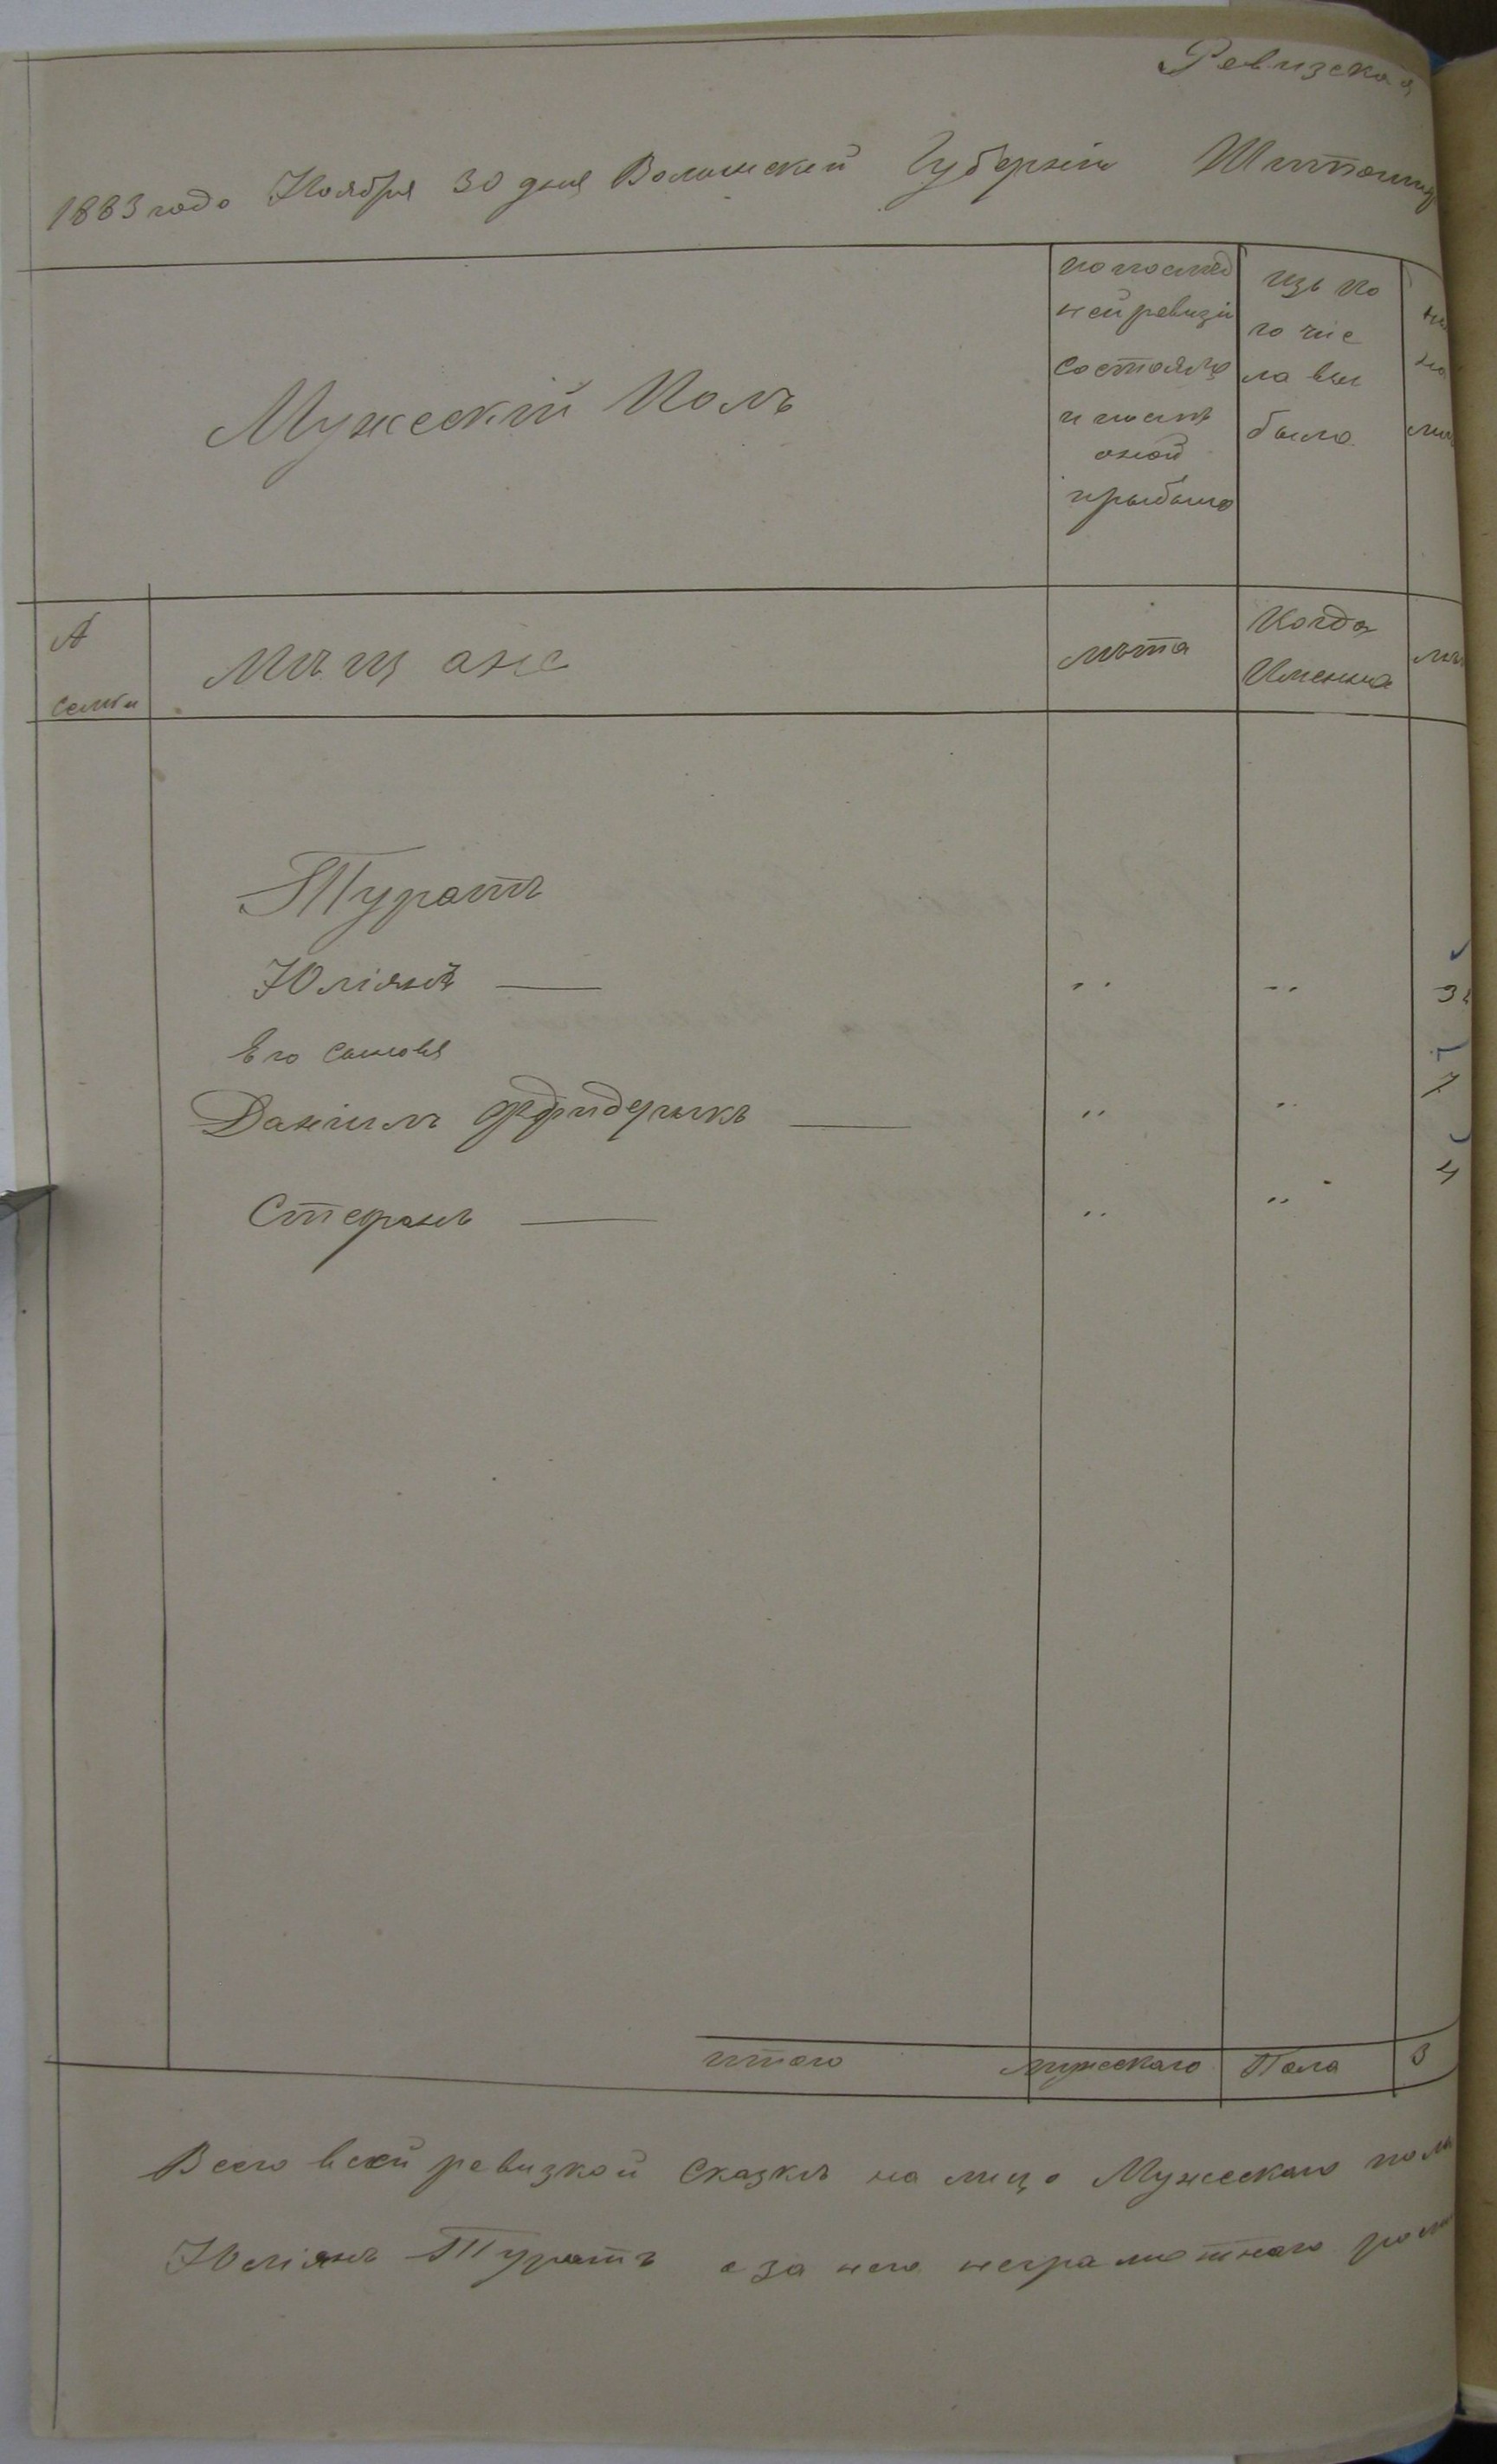 Ревизская
1883 года Ноября 30 дня Волынской Губерніи Житомир
Мужескій Полъ
по послед
ней ревизіи
состояло
и послѣ
оной
прыбыло
изъ то
го чис
ла вы
было
№
семьи
Мѣщане
лѣта
Когда
Именно
Туратъ
Юліянъ —
Его сыновя
Даніилъ Фридрыкъ —
7
Стефанъ —
4
итого мужескаго Пола 3
Всего в сей ревизкой Сказкѣ на лицо Мужескаго пола
Юліянъ Туратъ а за него неграмотнаго рос